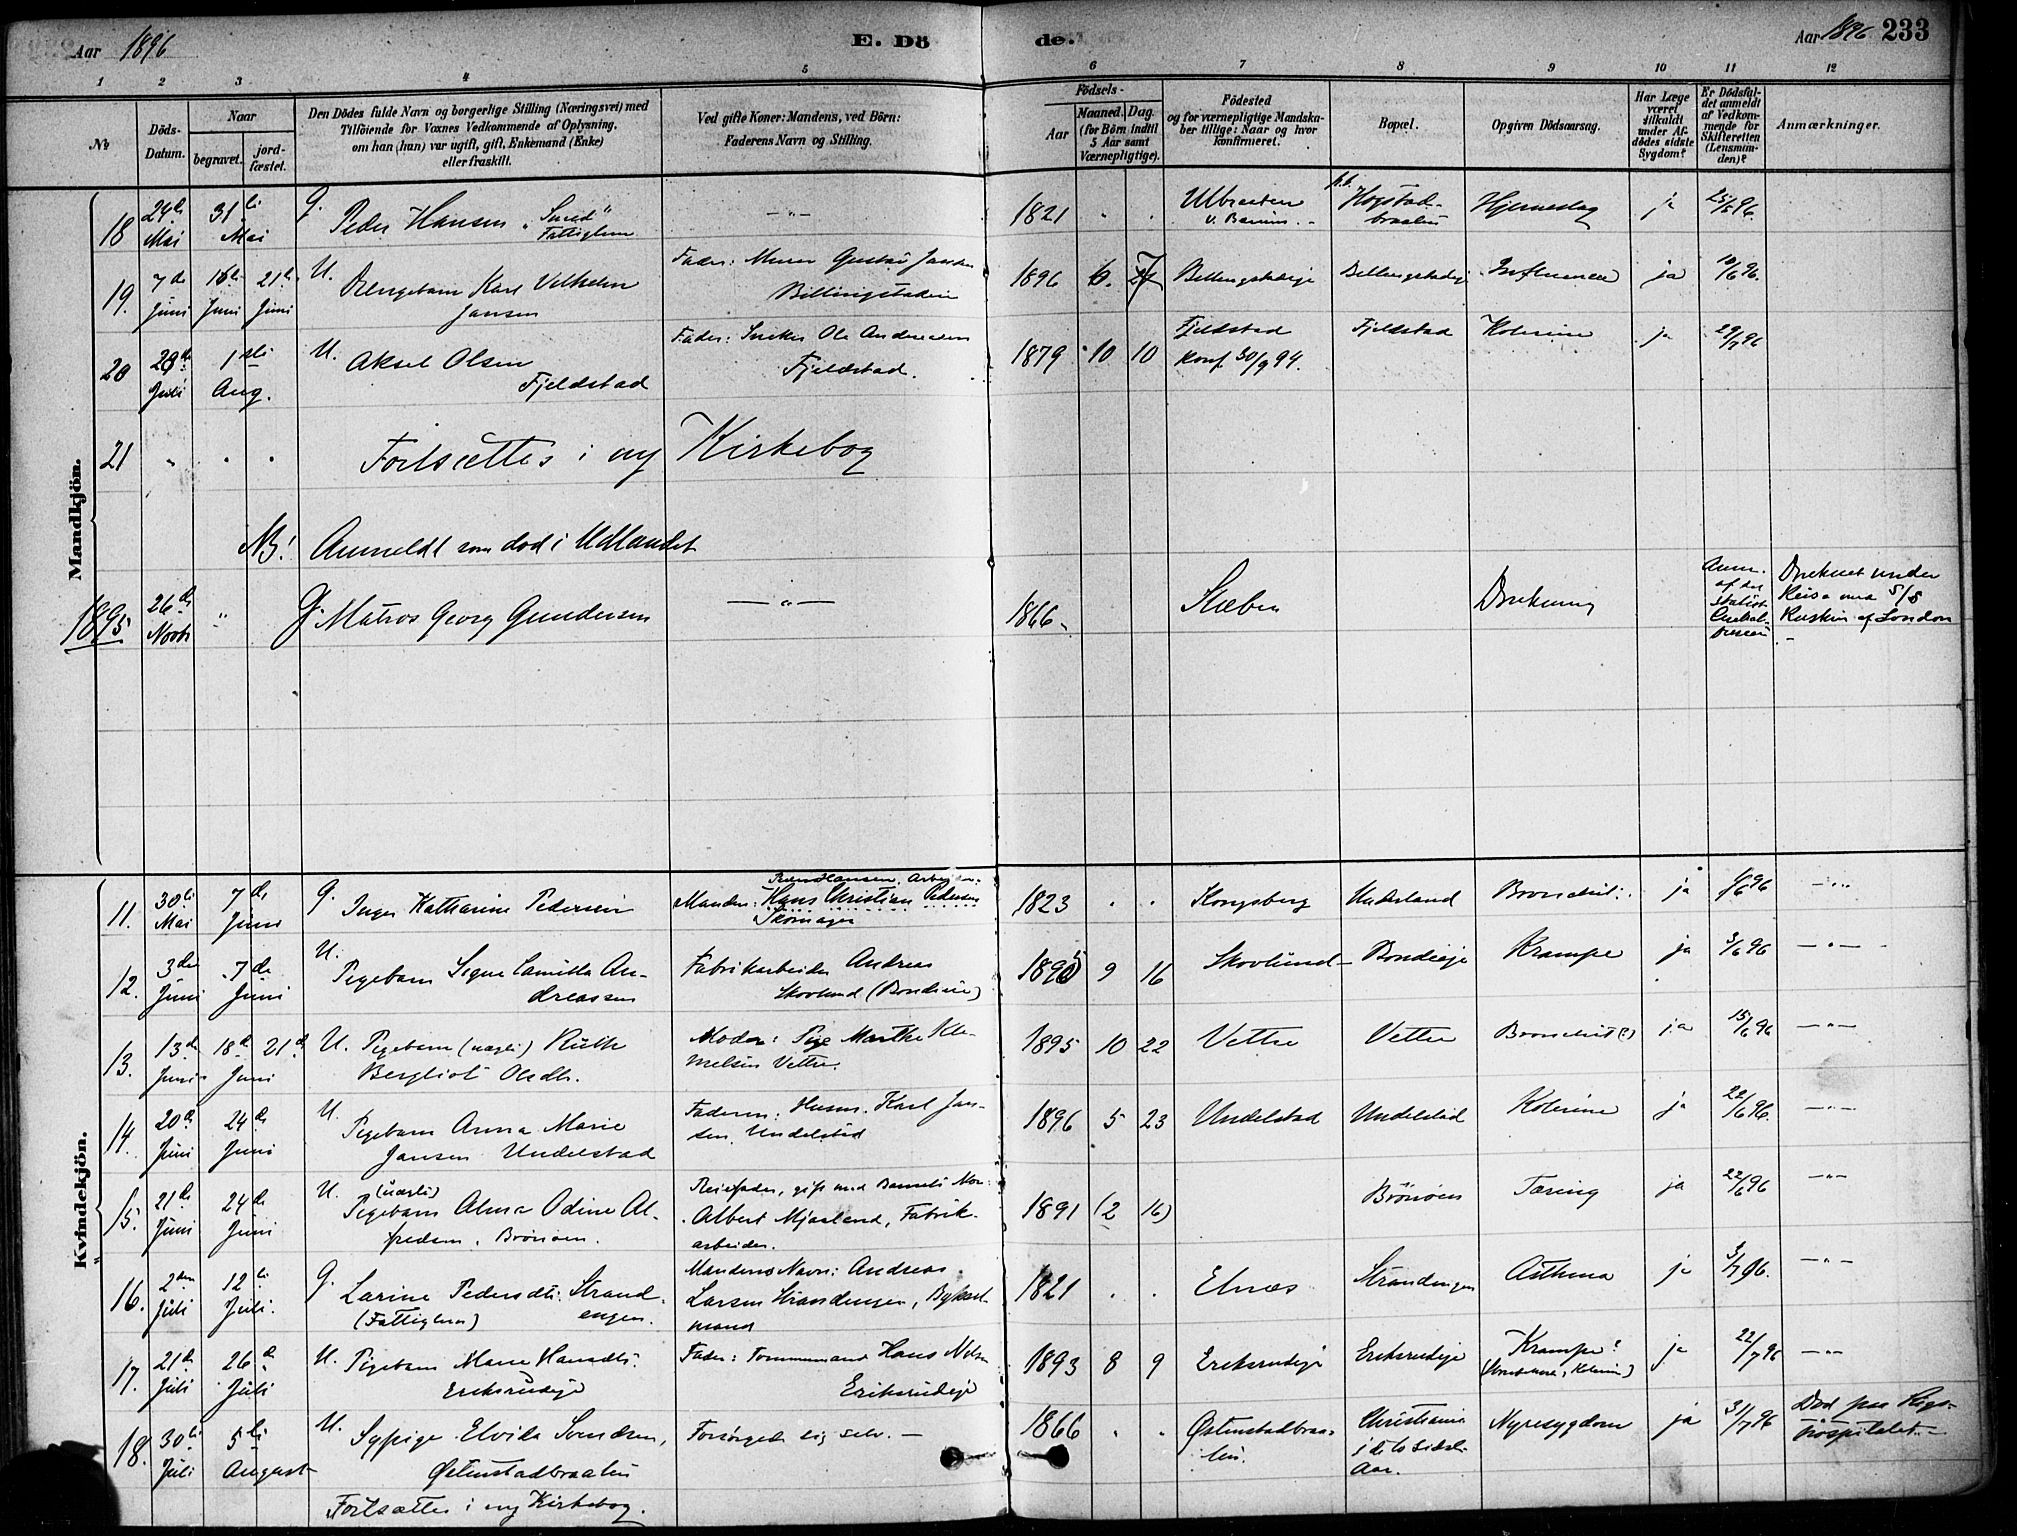 Aar 1896 E. Dö de. Aar 1896 233
1 2 3 4 5 6 7 8 9 10 11 12
No
Döds-Datum.
Naar
begravet. jordfæstet.
Den Dödes fulde Navn og borgerlige Stilling (Næringsvei) med
Tilföiende for Voxnes Vedkommende af Oplysning,
om han (hun) var ugift, gift, Enkemand (Enke)
eller fraskilt.
Ved gifte Koner: Mandens, ved Börn:
Faderens Navn og Stilling.
Födsels-
Aar
Maaned. Dag.
(for Börn indtil
5 Aar samt
Værnepligtige).
Födested
og for værnepligtige Mandskaber tillige: Naar og hvor
konfirmeret.
Bopæl.
Opgiven Dödsaarsag.
Har Læge
været
tilkaldt
under Afdödes sidste
Sygdom?
Er Dödsfaldet anmeldt
af Vedkommende for
Skifteretten
(Lensmanden)?
Anmærkninger.
Mandkjön.
18 24de Mai 31te Mai G. Peder Hansen "Smed" Fattiglem —"— 1821 . . Hjerneslag ja
19. 7de Juni 21de Juni U. Drengebarn Karl Vilhelm Jansen Fader: Murer Gustav Jansen 1896 6. Influensa ja 10/6 96.
20 1ste Aug. U. Aksel Olsen Fjeldstad Fader: Snekker Ole Andresen Fjeldstad. 1879 10 10 Fjeldstad Konf 30/9 94. Fjeldstad Kolerine ja
21 " . . Fortsættes i ny Kirkebog
NB! Anmeldt som død i Udlandet
1895 26de Novbr " G. Matros Georg Gundersen —"— 1866 Druknet under Reise med S/S Ruskin af London
Kvindekjön.
11. 30te Mai 7de Juni G. Inger Katharine Pedersen Manden: Hans Christian Pedersen Skomager 1823 . . Kongsberg ja —"—
12. 3die Juni 7de Juni U. Pigebarn Signe Camilla Andreassen Fabrikarbeider Andreas Skovlund 1895 9 16 Skovlund Bondieie Krampe ja 3/6 96 —"—
13. 13de Juni 18de Juni 21de U. Pigebarn (uægte) Ruth Bergliot Olsdtr. Moder: Pige Marthe Klemetsen Vettre. 1895 10 22 Vettre Vettre Bronchit (?) ja 15/6 96 —"—
14. 20de Juni 24de Juni U. Pigebarn Anna Marie Jansen Undelstad Faderen: Husm. Karl Jansen, Undelstad 1896 5 23 Undelstad Undelstad Kolerine ja 22/6 96. —"—
15. 21de Juni 24de Juni U. (uægte) Pigebarn Alma Odine Alfredsen, Brönöen. gift med Barnets Mor: Albert Mjaaland, Fabrikarbeider. 1891 (2 16) Brönöen Tæring ja 22/6 96 —"—
16. 2den Juli 12te Juli. G. Larine Pedersdtr. Strandengen. (Fattiglem) Mandens Navn: Andreas Larsen Strandengen, 1821 . . Elnæs Strandengen Asthma ja 3/7 96. —"—
17. 21de Juli 26de Juli U. Pigebarn Marie Hansdtr. Eriksrudeje Fader: Tømmermand Hans Nilsen Eriksrudeje 1893 8 9 Eriksrudeje Eriksrudeje Krampe? ja 22/7 96 —"—
18. 30te Juli 5te August U. Sypige Elvida Svendsen, Østenstadbraaten Forsörgede sig selv. — 1866 . . Østenstadbraaten. Christiania Nyresygdom ja 31/7 96 Død paa Rigshospitalet. —
Fortsættes i ny Kirkebog.